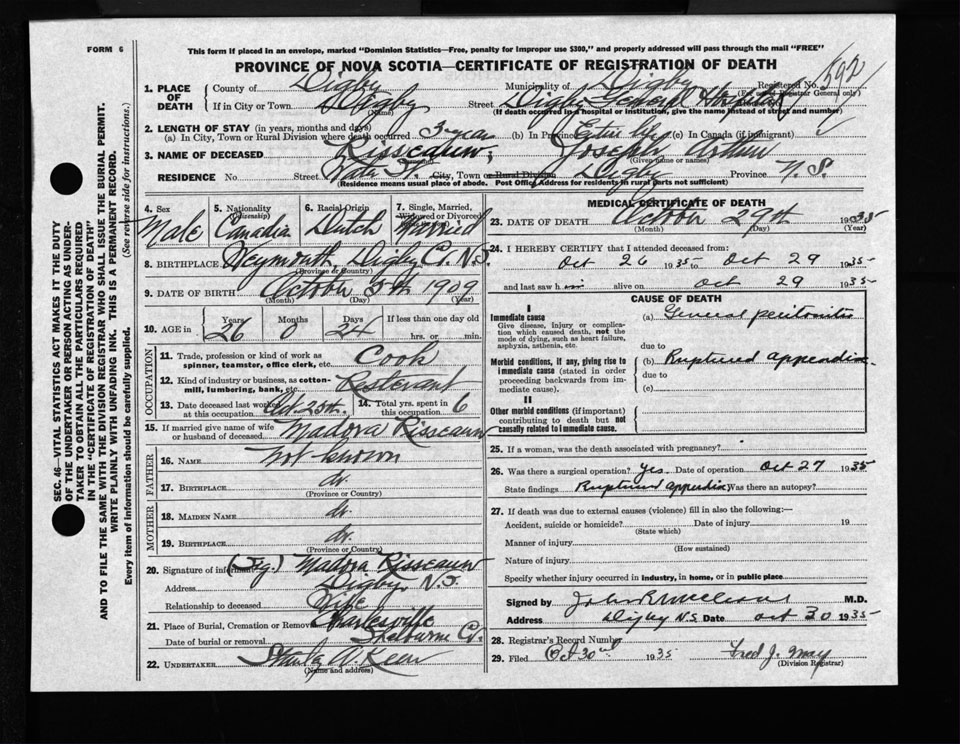 FORM 6
This form if placed in an envelope, marked "Dominion Statistics—Free, penalty for improper use $300," and properly addressed will pass through the mail "FREE"
PROVINCE OF NOVA SCOTIA—CERTIFICATE OF REGISTRATION OF DEATH
1. PLACE OF DEATH
County of Digby Municipality of Digby Registered No. 592
(For Registrar General only)
If in City or Town Digby Street Digby General Hospital
(Name) (If death occurred in a hospital or institution, give the name instead of street and number)
2. LENGTH OF STAY (in years, months and days)
(a) In City, Town or Rural Division where death occurred 3 year (b) In Province Entire life (c) In Canada (if immigrant)
3. NAME OF DECEASED Risseauw, Joseph Arthur
(Surname) (Given name or names)
RESIDENCE No. Street Water St. City, Town or Rural Division Digby Province N. S.
(Residence means usual place of abode. Post Office Address for residents in rural parts not sufficient)
4. Sex Male
5. Nationality (Citizenship) Canadia
6. Racial Origin Dutch
7. Single, Married, Widowed or Divorced Married
8. BIRTHPLACE Weymouth, Digby Co. N.S.
(Province or Country)
9. DATE OF BIRTH October 5th 1909
(Month) (Day) (Year)
10. AGE in Years 26 Months 0 Days 24 If less than one day old
hrs. or min.
OCCUPATION
11. Trade, profession or kind of work as spinner, teamster, office clerk, etc. Cook
12. Kind of industry or business, as cotton-mill, lumbering, bank, etc. Resterant
13. Date deceased last worked at this occupation Oct. 25th.
14. Total yrs. spent in this occupation 6
15. If married give name of wife or husband of deceased Madora Risseauw
FATHER
16. NAME not known
17. BIRTHPLACE do.
(Province or Country)
MOTHER
18. MAIDEN NAME do.
19. BIRTHPLACE do.
(Province or Country)
20. Signature of informant (Sig.) Madora Risseauw
Address Digby, N.S.
Relationship to deceased Wife
21. Place of Burial, Cremation or Removal Charlesville
Date of burial or removal Shelburne Co.
22. UNDERTAKER
(Name and address)
MEDICAL CERTIFICATE OF DEATH
23. DATE OF DEATH October 29th 1935
(Month) (Day) (Year)
24. I HEREBY CERTIFY that I attended deceased from:
Oct 26 1935 to Oct 29 1935
and last saw h im alive on Oct 29 1935
CAUSE OF DEATH
I
Immediate cause
Give disease, injury or complication which caused death, not the mode of dying, such as heart failure, asphyxia, asthenia, etc.
(a) General peritonitis
due to
Morbid conditions, if any, giving rise to immediate cause (stated in order proceeding backwards from immediate cause).
(b) Ruptured appendix
due to
(c)
II
Other morbid conditions (if important) contributing to death but not causally related to immediate cause.
25. If a woman, was the death associated with pregnancy?
26. Was there a surgical operation? Yes. Date of operation Oct 27 1935
State findings Ruptured appendix Was there an autopsy?
27. If death was due to external causes (violence) fill in also the following:—
Accident, suicide or homicide? Date of injury 19
(State which)
Manner of injury
(How sustained)
Nature of injury
Specify whether injury occurred in industry, in home, or in public place
Signed by M.D.
Address Digby N.S. Date Oct 30 1935
28. Registrar's Record Number
29. Filed Oct 30 1935 Fred J. May
(Division Registrar)
SEC. 46—VITAL STATISTICS ACT MAKES IT THE DUTY
OF THE UNDERTAKER OR PERSON ACTING AS UNDER-
TAKER TO OBTAIN ALL THE PARTICULARS REQUIRED
IN THE "CERTIFICATE OF REGISTRATION OF DEATH"
AND TO FILE THE SAME WITH THE DIVISION REGISTRAR WHO SHALL ISSUE THE BURIAL PERMIT.
WRITE PLAINLY WITH UNFADING INK. THIS IS A PERMANENT RECORD.
Every item of information should be carefully supplied. (See reverse side for instructions.)